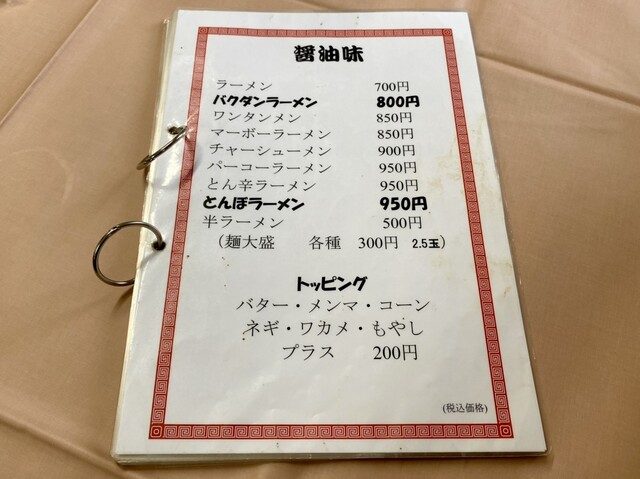 醤油味
ラーメン 700円
バクダンラーメン 800円
ワンタンメン 850円
マーボーラーメン 850円
チャーシューメン 900円
パーコーラーメン 950円
とん辛ラーメン 950円
とんぼラーメン 950円
半ラーメン 500円
（麺大盛 各種 300円 2.5玉）
トッピング
バター・メンマ・コーン
ネギ・ワカメ・もやし
プラス 200円
(税込価格)